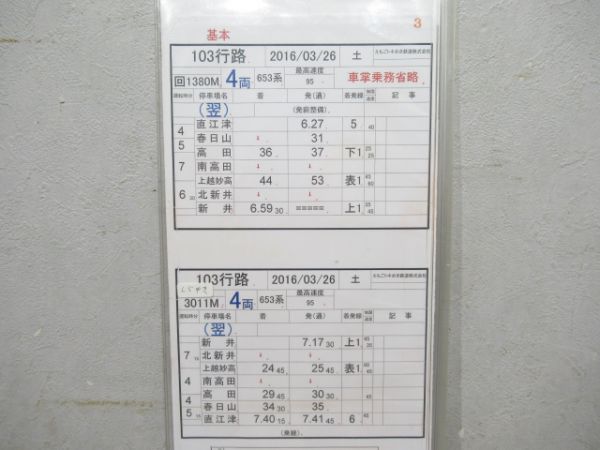 3
基本
103行路 2016/03/26 土 えちごトキめき鉄道株式会社
回1380M 4両 653系 最高速度 95 車掌乗務省略
運転時分 停車場名 着 発(通) 着発線 制限速度 記事
(翌) (発前整備)
直江津 6.27 5 40
4 春日山 ↓ 31
5 高田 36 37 下1 25 25
南高田 ↓ ↓
7 上越妙高 44 53 表1 45 60
北新井 ↓ ↓
6 30 新井 6.59 30 ===== 上1 35 45
103行路 2016/03/26 土 えちごトキめき鉄道株式会社
しらゆき
3011M 4両 653系 最高速度 95
運転時分 停車場名 着 発(通) 着発線 制限速度 記事
(翌)
新井 7.17 30 上1
北新井 ↓ ↓
7 15 上越妙高 24 45 25 45 表1
南高田 ↓ ↓
4 高田 29 45 30 30
4 春日山 34 30 35
5 15 直江津 7.40 15 7.41 45 6 45